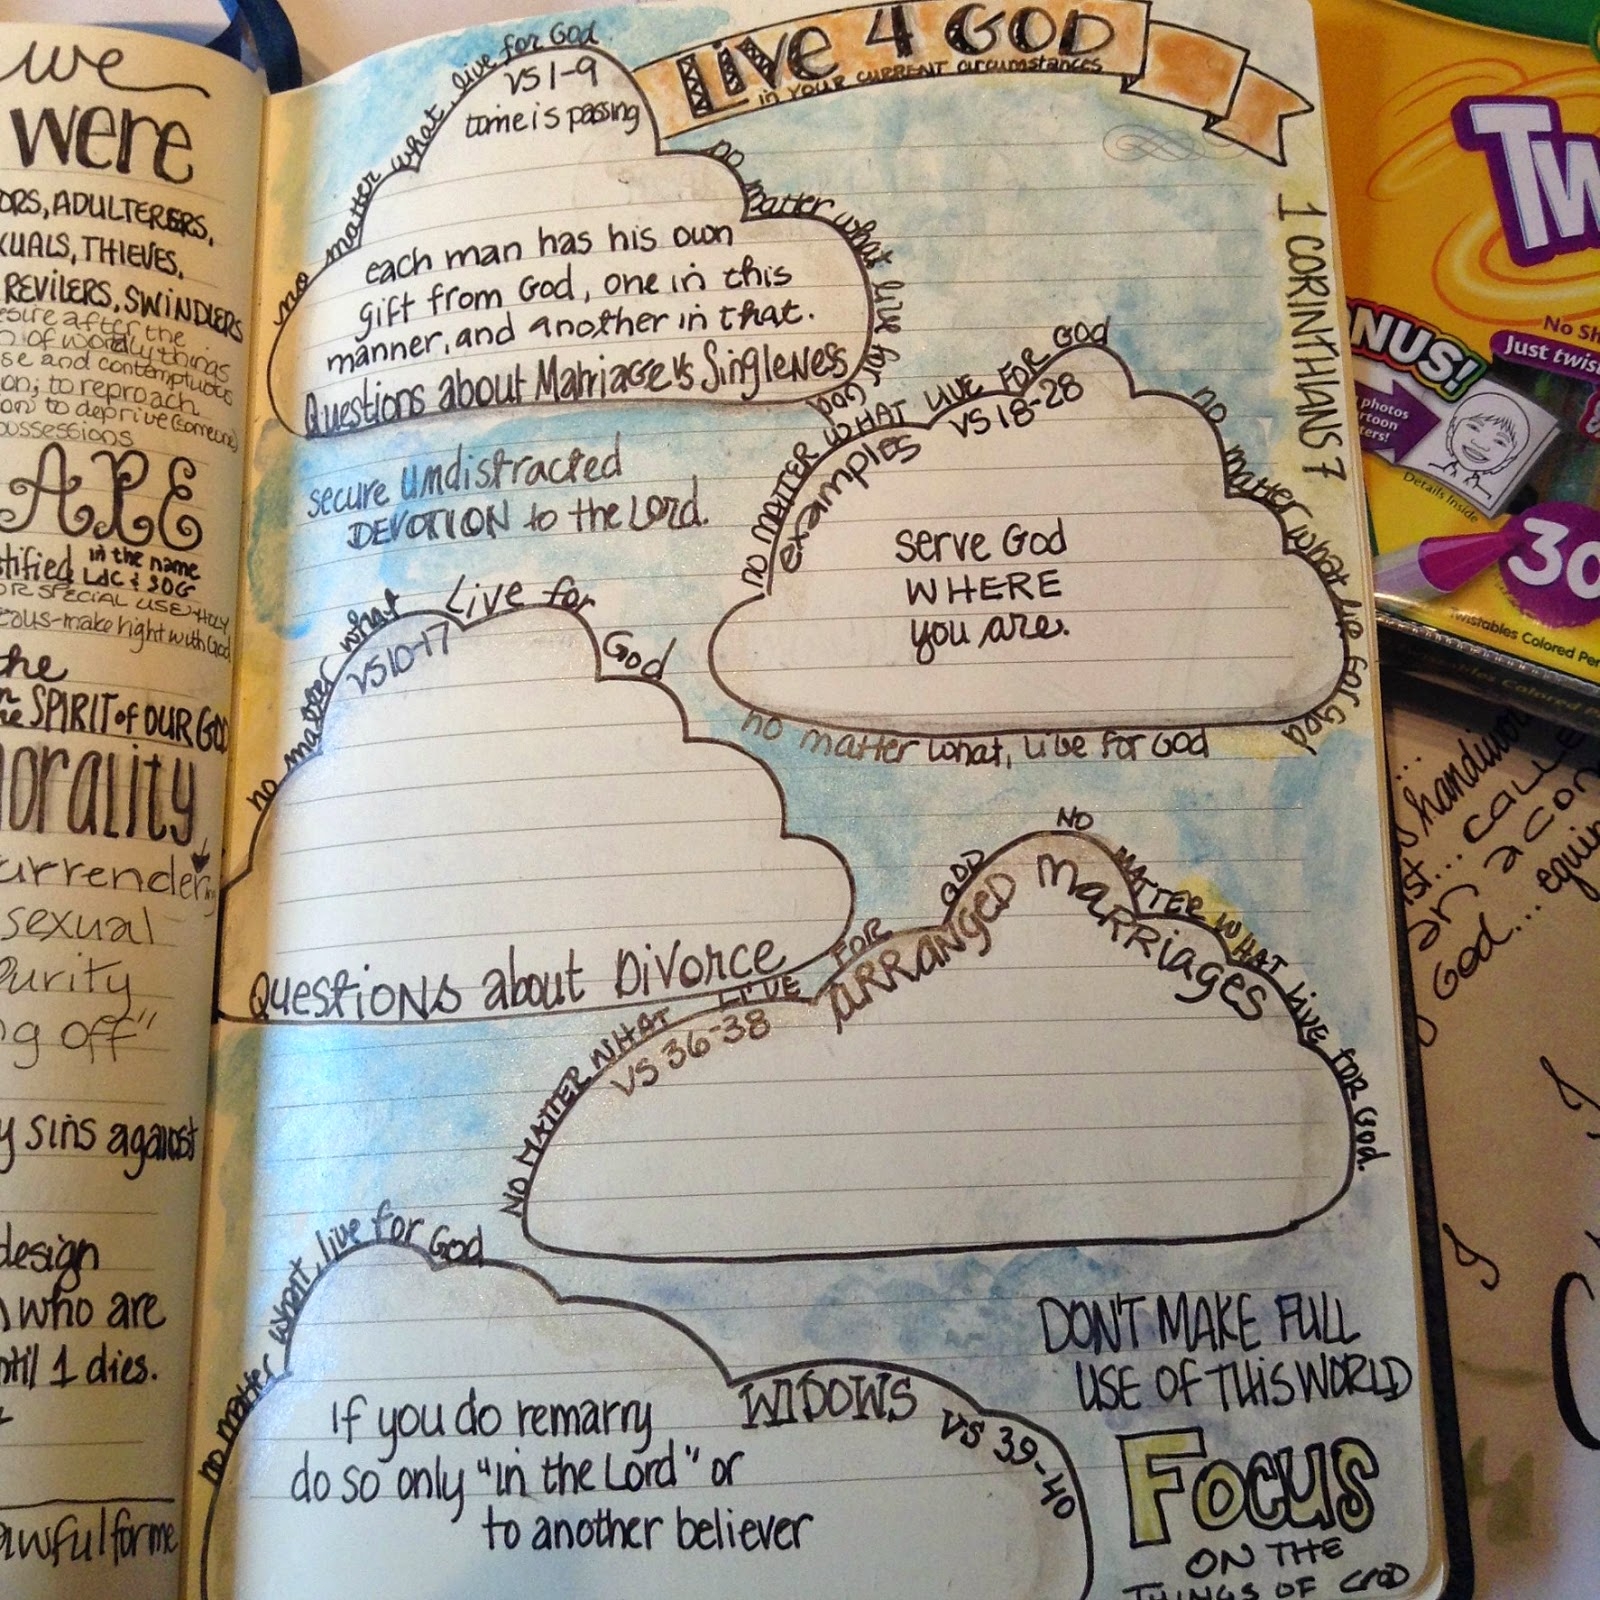 we
were
ORS, ADULTERERS,
XUALS, THIEVES,
REVILERS, SWINDLERS
desire after the
of wordly things
se and contemptuous
on; to reproach
on to deprive (someone)
possessions
ARE
stified in the name
LdC & SOG
OR SPECIAL USE-HOLY
eous-make right with God
the
SPIRIT of OUR GOD
morality
urrender
sexual
Purity
ng off"
y sins against
design
who are
ntil 1 dies.
awful for me
Live 4 GOD
in your CURRENT circumstances
1 CORINTHIANS 7
no matter what, live for God
VS 1-9
time is passing
no matter what live for God
each man has his own
gift from God, one in this
manner, and another in that.
Questions about Marriage vs Singleness
secure undistracted
DEVOTION to the Lord.
NO MATTER WHAT LIVE FOR GOD
VS 18-28
examples
no matter what live for God
serve God
WHERE
you are.
no matter what, live for God
no matter what Live for God
VS 10-17
Questions about Divorce
NO MATTER WHAT LIVE FOR GOD
VS 36-38
ARRANGED Marriages
NO MATTER WHAT LIVE FOR GOD.
no matter what, live for God
WIDOWS VS 39-40
If you do remarry
do so only "in the Lord" or
to another believer
DON'T MAKE FULL
USE OF THIS WORLD
FOCUS
ON THE
THINGS OF GOD
Tw
No Sh
Just twis
ONUS!
photos
rtoon
ters!
Details Inside
30
Twistables Colored Pen
handiwor
ist... calle
an acon
God... equip
I
I